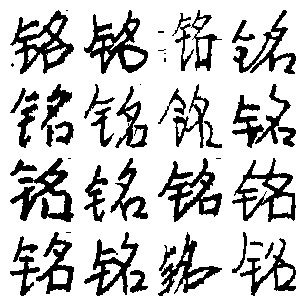 铭铭铭铭
铭铭铭铭
铭铭铭铭
铭铭铭铭